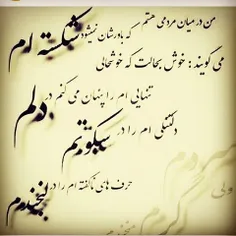 من در میان مردمی هستم
که باورشان نمیشود شکسته ام
می گویند : خوش بحالت که خوشحالی
تنهایی ام را پنهان می کنم در دلم
دلتنگی ام را در سکوتم
حرف های ناگفته ام را در لبخندم
ولی